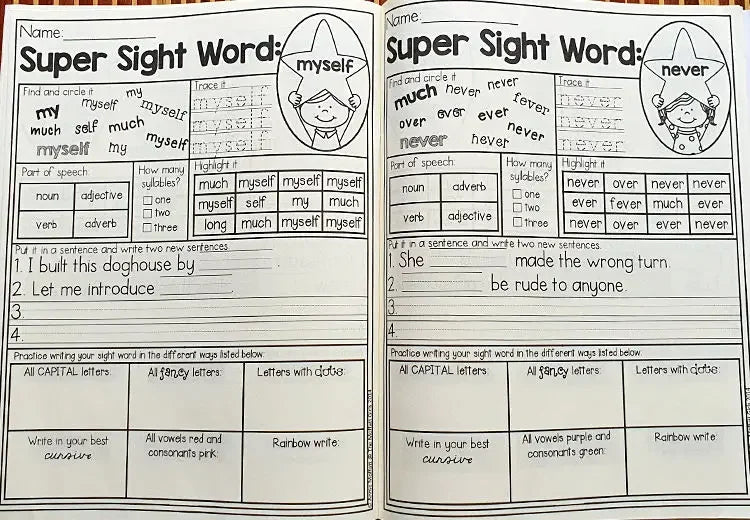 Name:
Super Sight Word:
myself
Find and circle it
my
my myself myself
much self much
myself my myself
Trace it
myself
myself
myself
Part of speech
noun adjective
verb adverb
How many
syllables?
one
two
three
Highlight it
much myself myself myself
myself self my much
long much myself myself
Put it in a sentence and write two new sentences.
1. I built this doghouse by .
2. Let me introduce .
3.
4.
Practice writing your sight word in the different ways listed below:
All CAPITAL letters: All fancy letters: Letters with dots:
Write in your best
cursive
All vowels red and
consonants pink:
Rainbow write:
2014
Name:
Super Sight Word:
never
Find and circle it
much never never
fever
over ever ever
never
never never
Trace it
never
never
never
Part of speech
noun adverb
verb adjective
How many
syllables?
one
two
three
Highlight it
never over never never
ever fever much ever
never over ever never
Put it in a sentence and write two new sentences.
1. She made the wrong turn.
2. be rude to anyone.
3.
4.
Practice writing your sight word in the different ways listed below:
All CAPITAL letters: All fancy letters: Letters with dots:
Write in your best
cursive
All vowels purple and
consonants green:
Rainbow write: